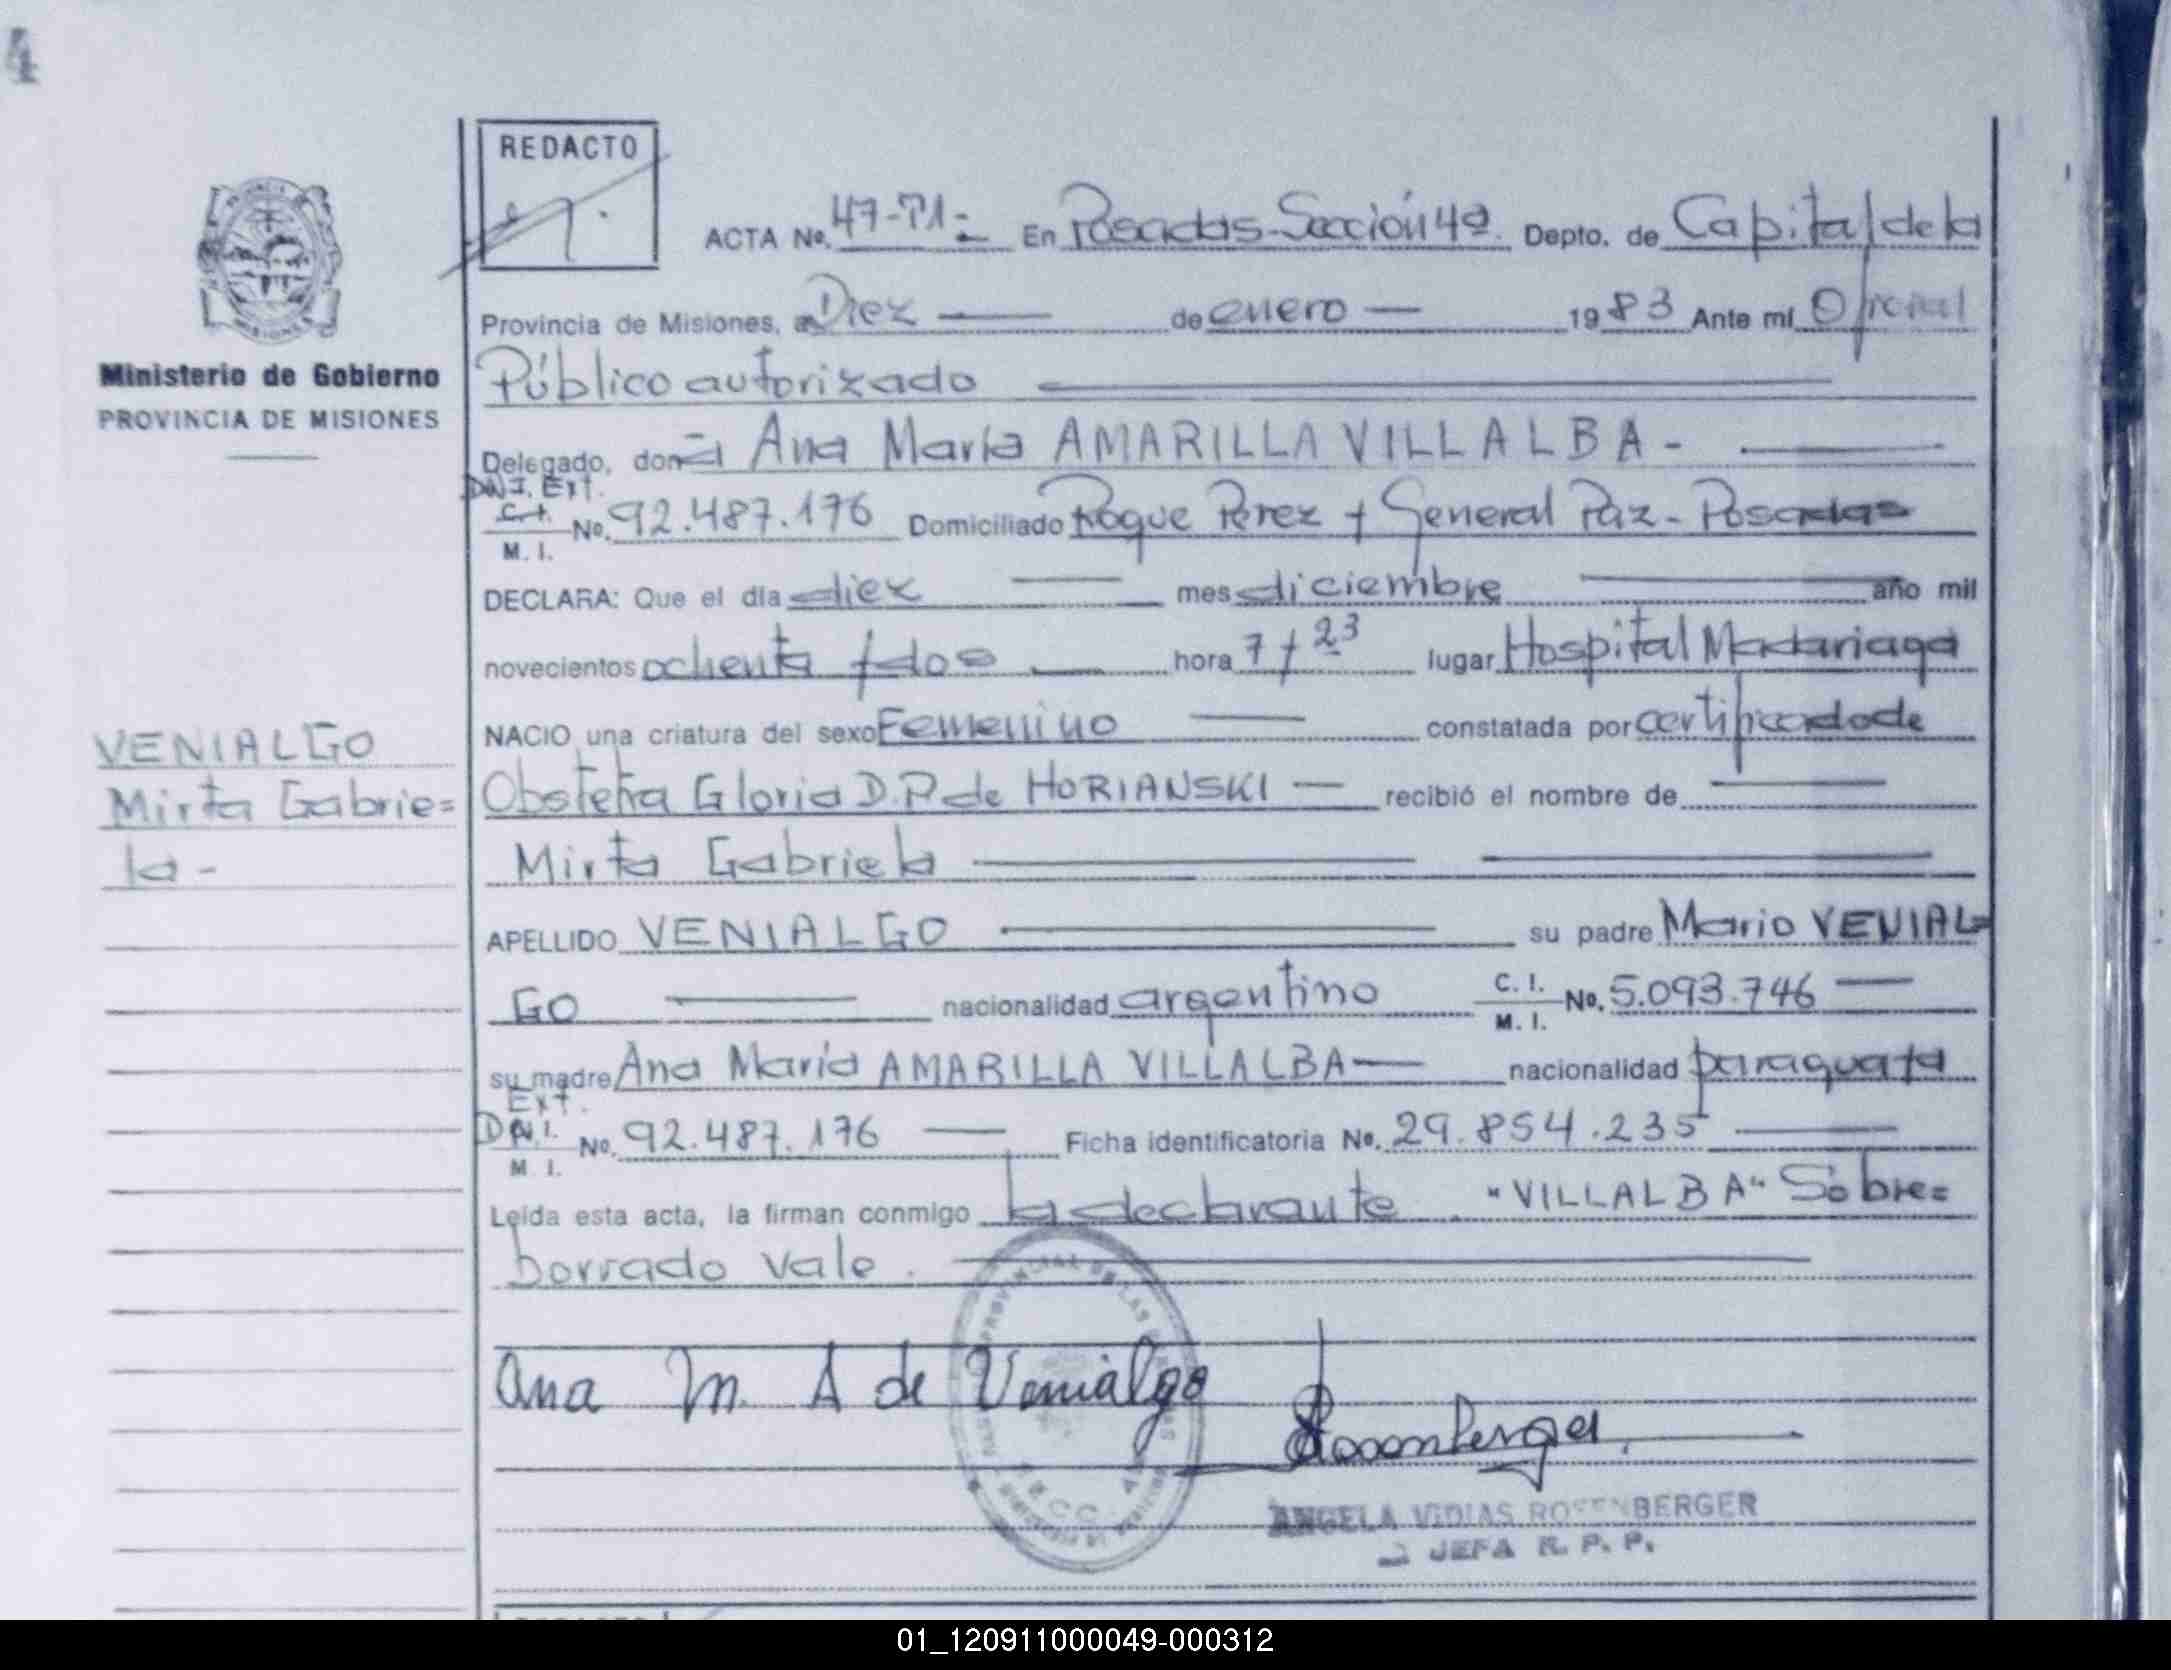 REDACTO
ACTA No. 47-T1- En Posadas-Sección 4ª. Depto. de Capital de la
Provincia de Misiones, a Diez de enero 1983 Ante mí Oficial
Ministerio de Gobierno
PROVINCIA DE MISIONES
Público autorizado
Delegado, doña Ana María AMARILLA VILLALBA -
DNI. Ext.
C.I.
M. I.
No. 92.487.176 Domiciliado Roque Perez y General Paz - Posadas
DECLARA: Que el día diez mes diciembre año mil
novecientos ochenta y dos hora 7 y 23 lugar Hospital Madariaga
NACIO una criatura del sexo Femenino constatada por certificado de
VENIALGO
Mirta Gabrie=
la -
Obstetra Gloria D.P. de HORIANSKI recibió el nombre de
Mirta Gabriela
APELLIDO VENIALGO su padre Mario VENIAL=
GO nacionalidad argentino C. I. M. I. No. 5.093.746
su madre Ana María AMARILLA VILLALBA nacionalidad paraguaya
Ext.
D.N.I. M. I. No. 92.487.176 Ficha identificatoria No. 29.854.235
Leída esta acta, la firman conmigo la declarante . "VILLALBA" Sobre=
borrado vale .
Ana M. A de Venialgo
Rosenberger
ANGELA VIDIAS ROSENBERGER
JEFA R. P. P.
01_120911000049-000312